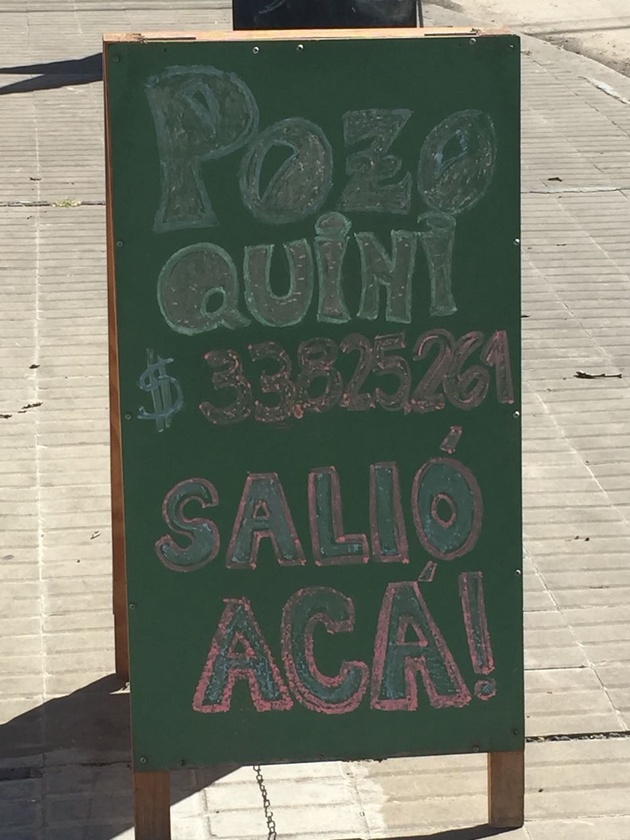 POZO
QUINI
$ 33825261
SALIÓ
ACÁ!